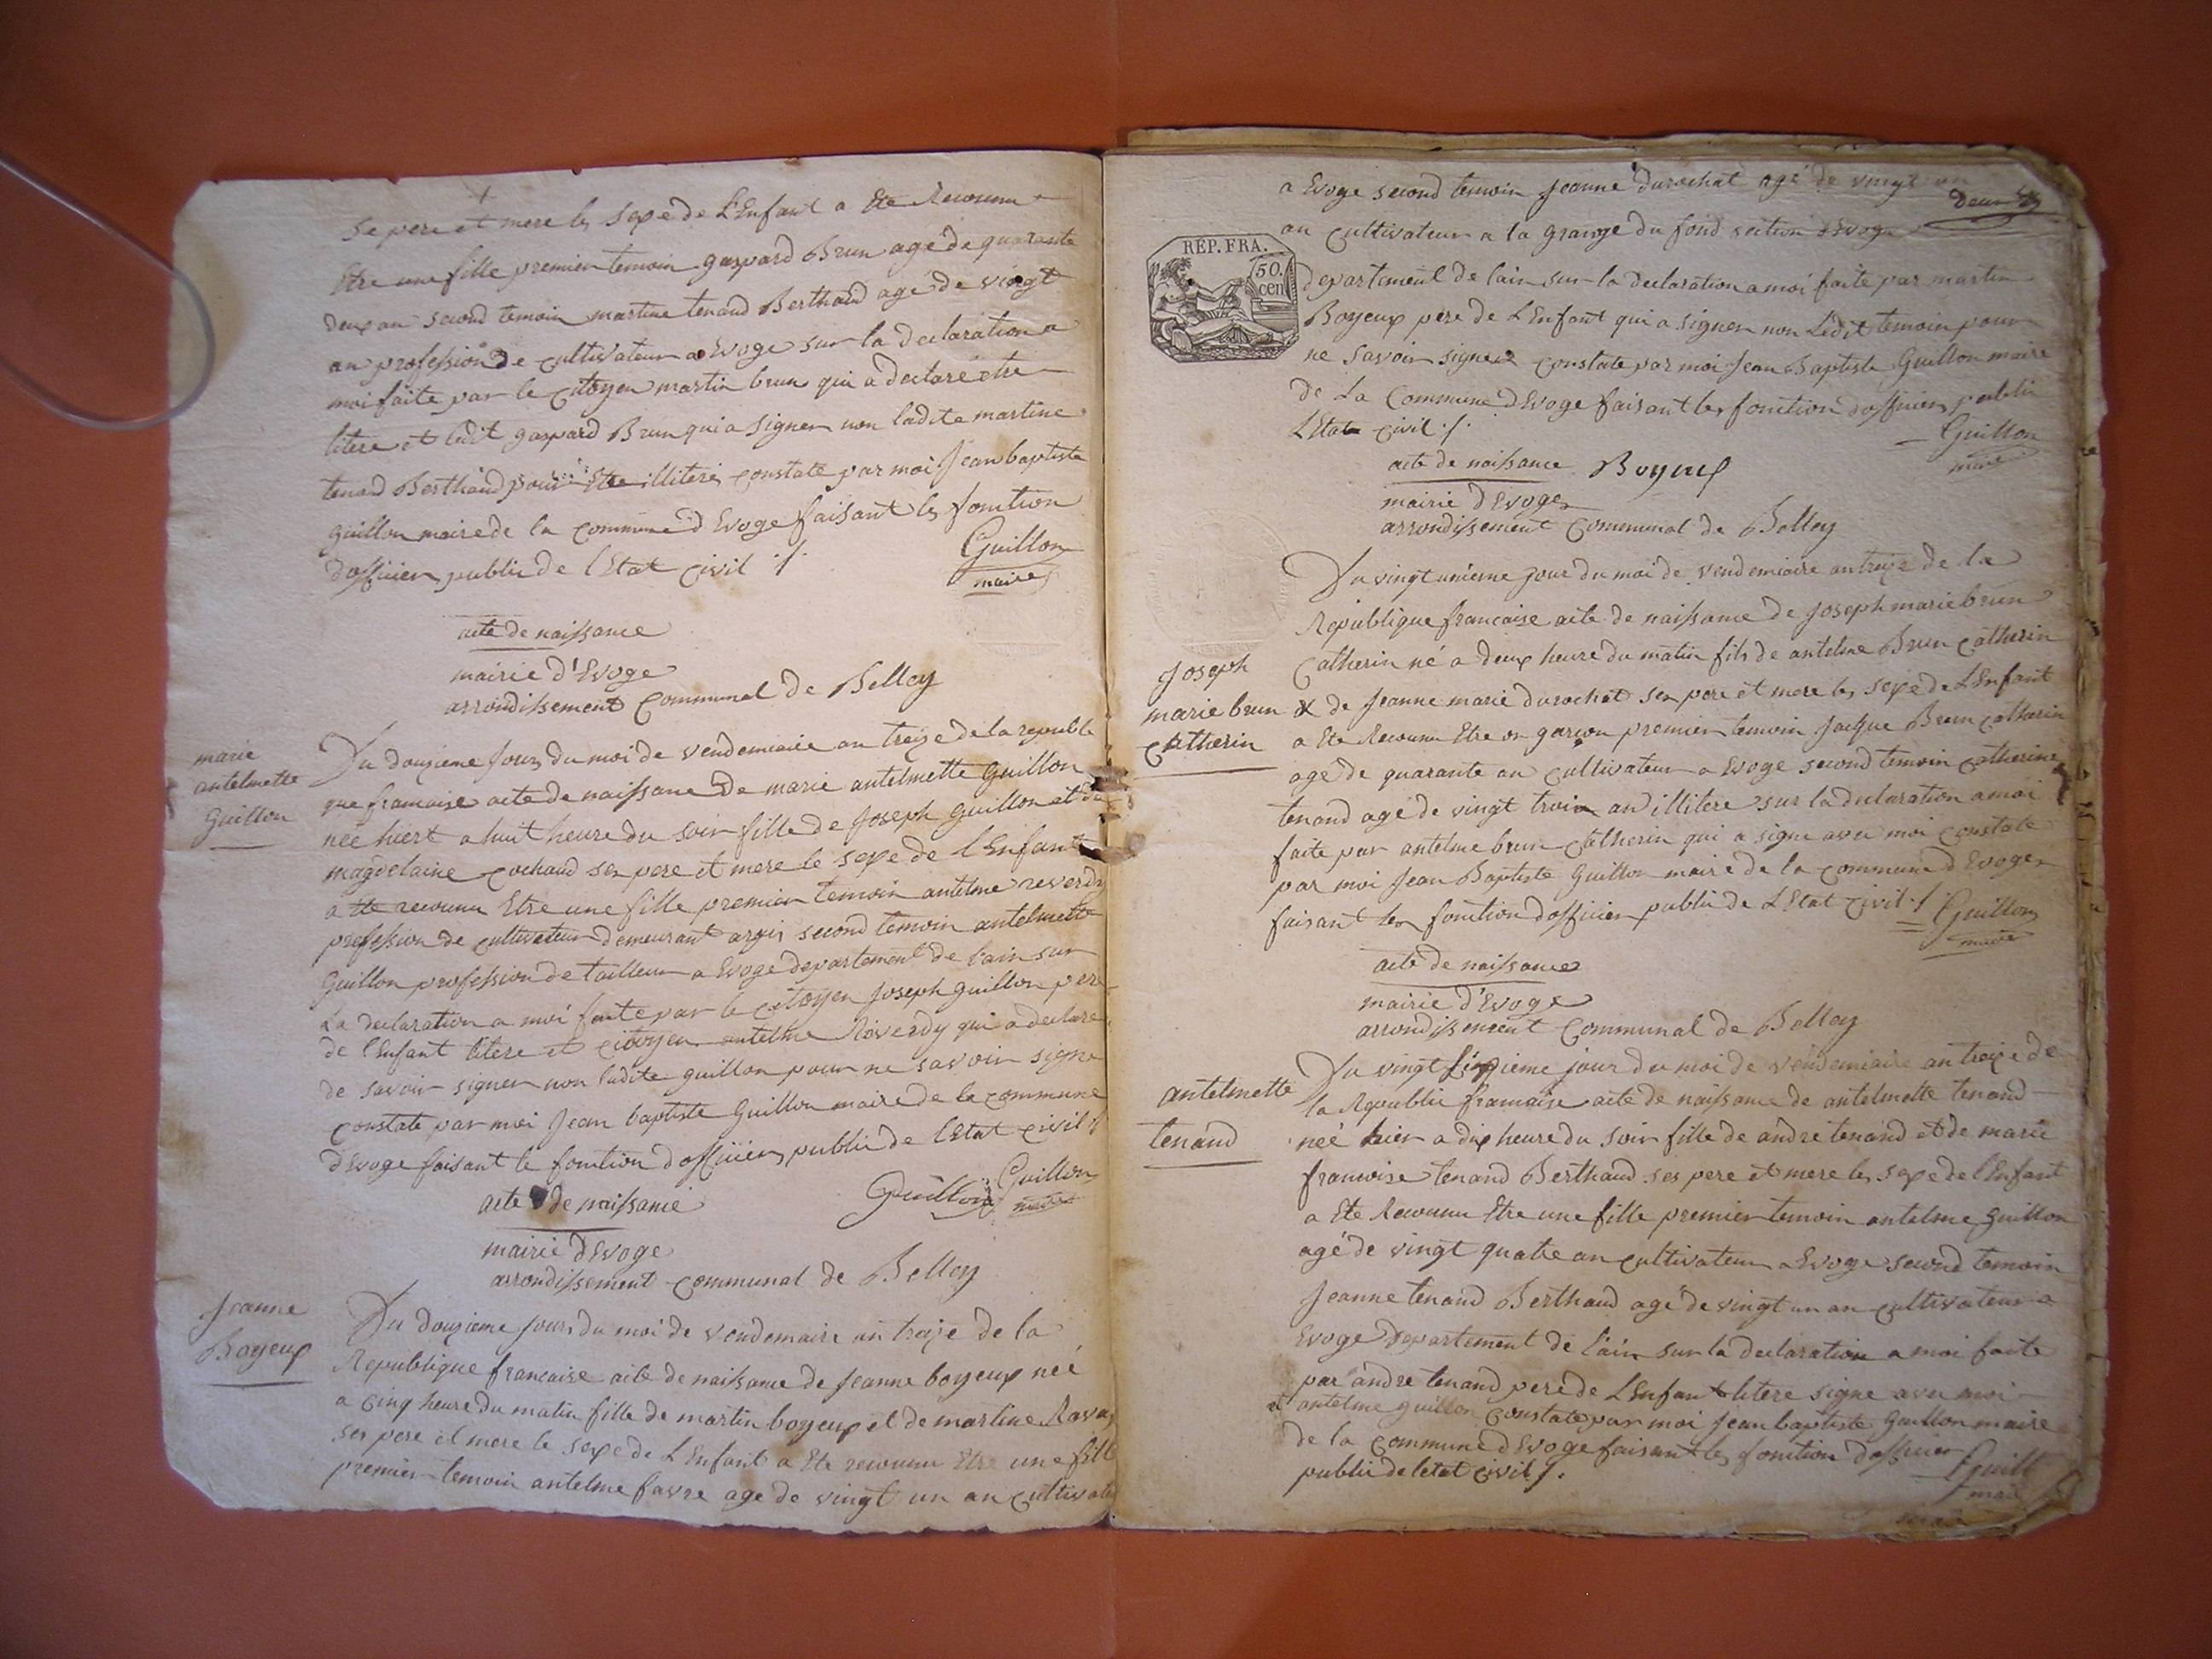 se pere et mere les sexe de L'Enfant a Ete Reconnu
Etre une fille premier temoin gaspard Brun age de quarante
deux an second temoin martine tenand Berthaud agé de vingt
an profession de cultivateur a Evoge sur la declaration a
moi faite par le citoyen martin brun qui a declaré etre
litere et ledit gaspard Brun qui a signer non ladite martine
tenand Berthaud pour Etre illiteré constaté par moi Jean baptiste
guillon maire de la commune d'Evoge faisant les fonction
d'officier public de l'Etat civil ./.
Guillon
maire
acte de naissance
mairie d'Evoge
arrondissement Communal de Belley
marie
antelmette
Guillon
Du douzieme Jour du moi de vendemiaire an treize de la republi
que francaise acte de naissance de marie antelmette Guillon
née hiert a huit heure du soir fille de Joseph Guillon et de
magdelaine cochaud ses pere et mere le sexe de l'Enfant
a ete reconnu Etre une fille premier temoin antelme reverdy
profession de cultivateur demeurant argis second temoin antelmette
Guillon profession de tailleur a Evoge departement de l'ain sur
La declaration a moi faite par le citoyen Joseph guillon pere
de l'Enfant litere et citoyen antelme Reverdy qui a declare
de savoir signer non ladite guillon pour ne savoir signe
constate par moi Jean baptiste Guillon maire de la commune
d'Evoge faisant le fonction d'officier public de l'Etat civil
Guillon Guillon
maire
acte de naissance
mairie d'Evoge
arrondissement communal de Belley
Jeanne
Boyeux
Du douzieme jour du moi de vendemaire an treize de la
Republique francaise acte de naissance de Jeanne boyeux née
a cinq heure du matin fille de martin boyeux et de martine Rava
ses pere et mere le sexe de L'Enfant a Ete reconnu Etre une fill
premier temoin antelme favre age de vingt un an cultivate
a Evoge second temoin Jeanne durochat agé de vingt un
Deux
an cultivateur a la grange du fond section d'Evoge
REP. FRA.
50. cen
departement de lain sur la declaration a moi faite par martin
Boyeux pere de L'Enfant qui a signer non Ledit temoin pour
ne savoir signer constate par moi Jean Baptiste Guillon maire
de La Commune d'Evoge faisant les fonction d'officier public
L'Etat civil ./.
Guillon
maire
acte de naissance Boyeux
mairie d'Evoge
arrondissement Communal de Belley
Du vingt unieme jour du moi de vendemiaire an treize de la
Republique francaise acte de naissance de Joseph marie brun
Joseph
marie brun
Catherin
Catherin né a deux heure du matin fils de antelme Brun Catherin
& de Jeanne marie durochat ses pere et mere les sexe de L'Enfant
a Ete Reconnu Etre un garçon premier temoin Jacque Brun Catherin
age de quarante an cultivateur a Evoge second temoin catherine
tenand agé de vingt trois an illitere sur la declaration a moi
faite par antelme brun Catherin qui a signe avec moi constate
par moi Jean Baptiste Guillon maire de la commune d'Evoge
faisant les fonction d'officier public de L'Etat civil ./.
Guillon
maire
acte de naissance
mairie d'Evoge
arrondissement Communal de Belley
antelmette
tenand
Du vingt sixieme jour du moi de vendemiaire an treize de
la Republic francaise acte de naissance de antelmette tenand
neé hier a dix heure du soir fille de andre tenand et de marie
francoise tenand Berthaud ses pere et mere les sexe de l'Enfant
a Ete Reconnu Etre une fille premier temoin antelme guillon
agé de vingt quatre an cultivateur a Evoge second temoin
Jeanne tenand Berthaud agé de vingt un an cultivateur a
Evoge Departement de l'ain sur la declaration a moi faite
par andre tenand pere de L'Enfant litere signe avec moi
et antelme guillon constate par moi Jean baptiste Guillon maire
de la commune d'Evoge faisant les fonction d'officier
public de letat civil ./.
Guill
maire